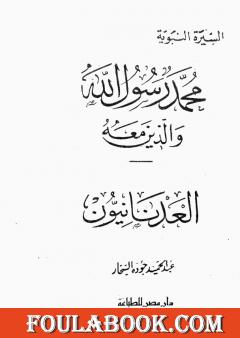 السيرة النبوية
محمد رسول الله
والذين معه
العدنانيون
عبد الحميد جوده السحار
دار مصر للطباعة
FOULABOOK.COM